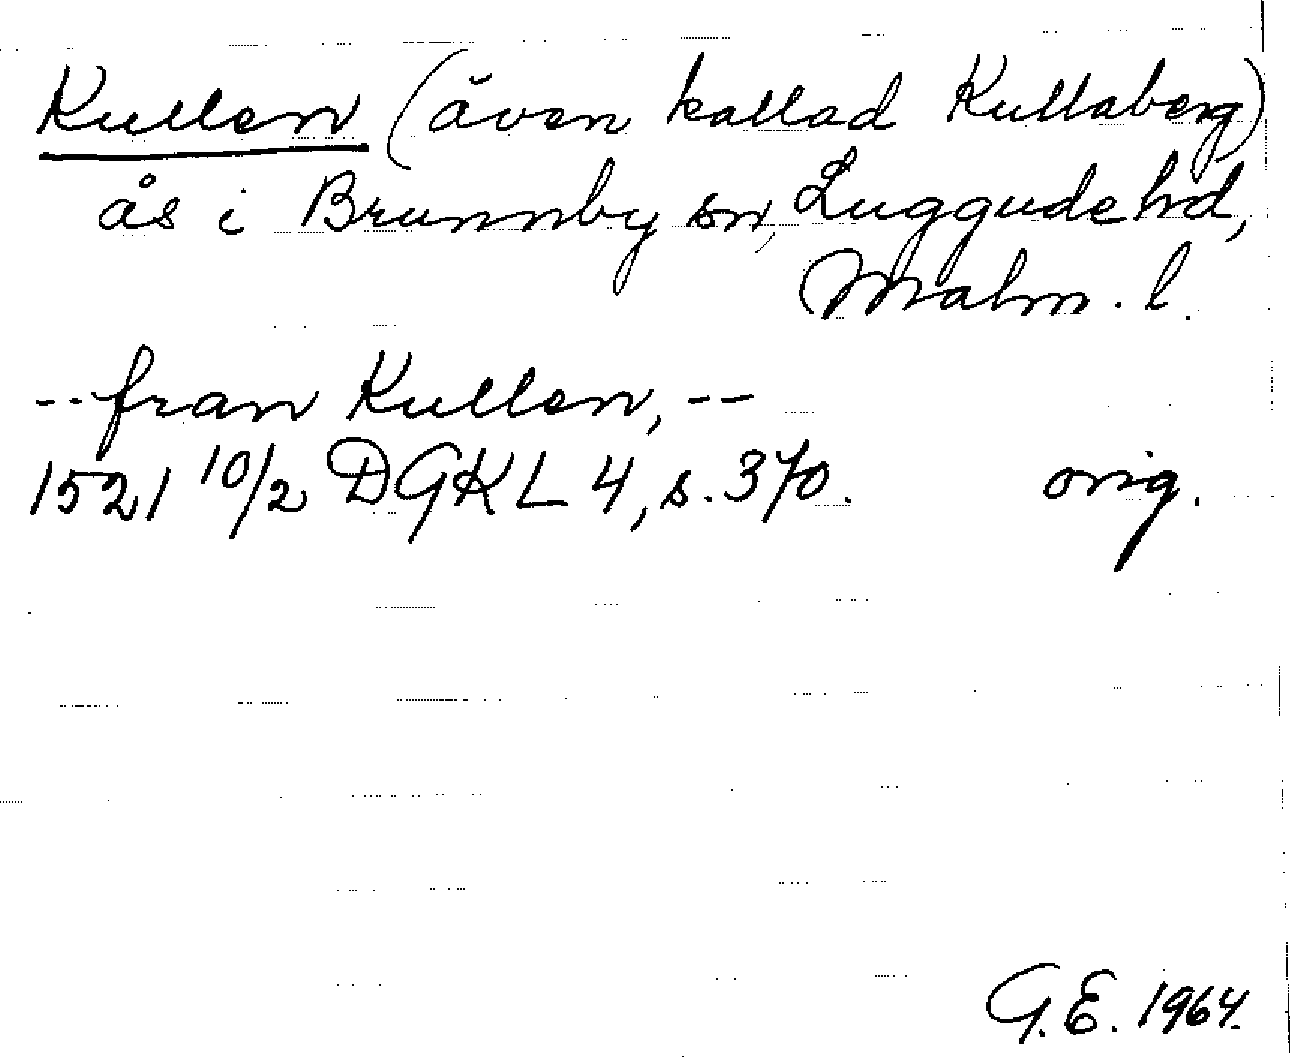 Kullen (även kallad Kullaberg)
ås i Brunnby sn, Luggude hd,
Malm. l.
-- fran Kullen, --
1521 10/2 DGKL 4, s. 370. orig.
G.E. 1964.